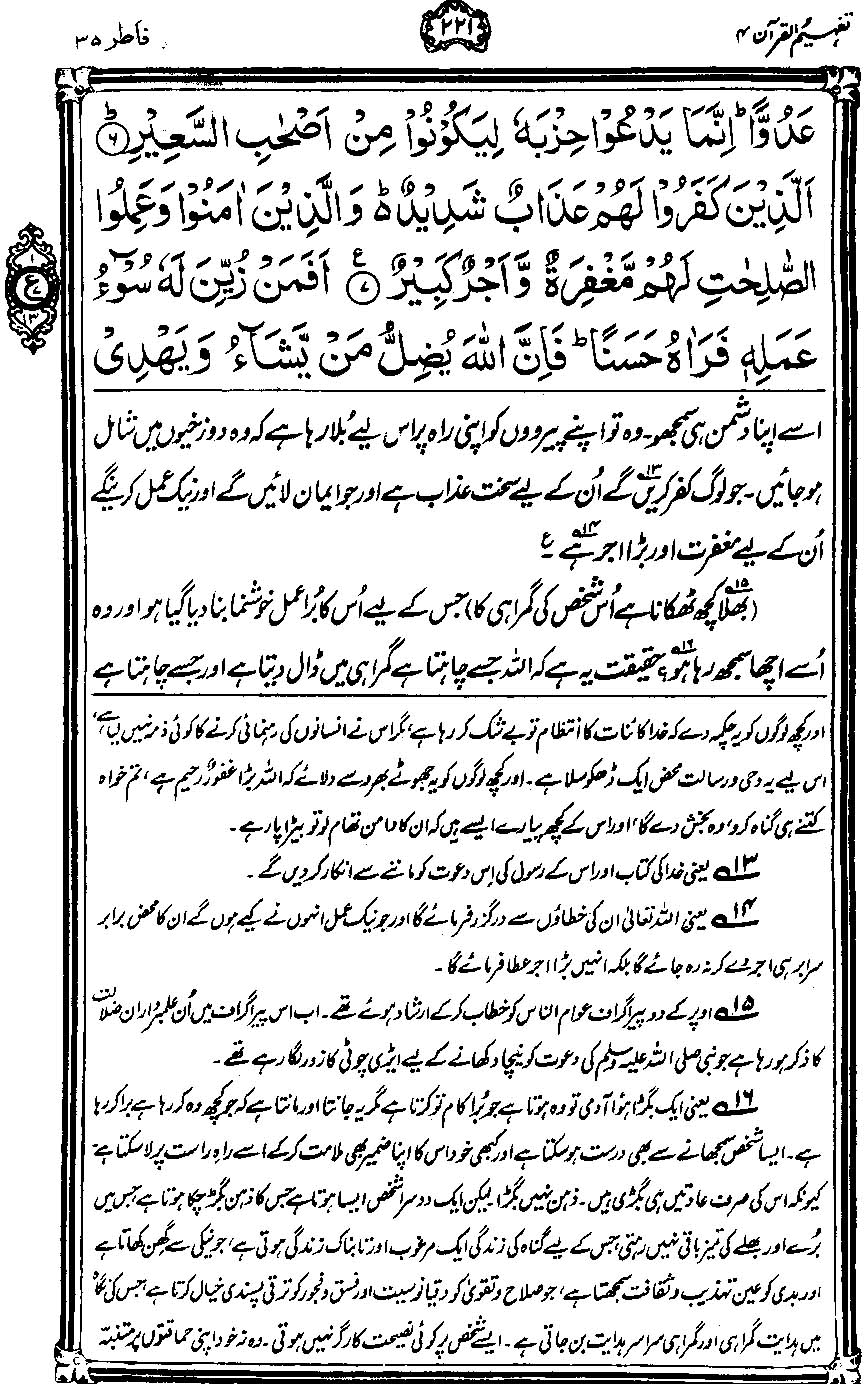 تفہیم القرآن ۴
۲۲۱
فاطر ۳۵
عَدُوًّا ؕ اِنَّمَا یَدْعُوْا حِزْبَهٗ لِیَكُوْنُوْا مِنْ اَصْحٰبِ السَّعِیْرِ ؕ۶
اَلَّذِیْنَ كَفَرُوْا لَهُمْ عَذَابٌ شَدِیْدٌ ؕ۬ وَ الَّذِیْنَ اٰمَنُوْا وَ عَمِلُوا
الصّٰلِحٰتِ لَهُمْ مَّغْفِرَةٌ وَّ اَجْرٌ كَبِیْرٌ ۧ۷ اَفَمَنْ زُیِّنَ لَهٗ سُوْٓءُ
عَمَلِهٖ فَرَاٰهُ حَسَنًا ؕ فَاِنَّ اللّٰهَ یُضِلُّ مَنْ یَّشَآءُ وَ یَهْدِیْ
۱
ع
۱۳
اسے اپنا دشمن ہی سمجھو۔ وہ تو اپنے پیرووں کو اپنی راہ پر اس لیے بُلا رہا ہے کہ وہ دوزخیوں میں شامل
ہو جائیں۔ جو لوگ کفر کریں۱۳ گے اُن کے لیے سخت عذاب ہے اور جو ایمان لائیں گے اور نیک عمل کرینگے
اُن کے لیے مغفرت اور بڑا اجر ہے۱۴۔ ع
(بھلا۱۵ کچھ ٹھکانا ہے اُس شخص کی گمراہی کا) جس کے لیے اُس کا بُرا عمل خوشنما بنا دیا گیا ہو اور وہ
اُسے اچھا سمجھ رہا ہو؟۱۶ حقیقت یہ ہے کہ اللہ جسے چاہتا ہے گمراہی میں ڈال دیتا ہے اور جسے چاہتا ہے
اور کچھ لوگوں کو یہ چکمہ دے کہ خدا کائنات کا انتظام تو بے شک کر رہا ہے، مگر اس نے انسانوں کی رہنمائی کرنے کا کوئی ذمہ نہیں لیا ہے،
اس لیے یہ وحی و رسالت محض ایک ڈھکوسلا ہے۔ اور کچھ لوگوں کو یہ جھوٹے بھروسے دلائے کہ اللہ بڑا غفورٌ رحیم ہے، تم خواہ
کتنے ہی گناہ کرو، وہ بخش دے گا، اور اس کے کچھ پیارے ایسے ہیں کہ ان کا دامن تھام لو تو بیڑا پار ہے۔
۱۳؎ یعنی خدا کی کتاب اور اس کے رسول کی اِس دعوت کو ماننے سے انکار کر دیں گے۔
۱۴؎ یعنی اللہ تعالیٰ ان کی خطاؤں سے درگزر فرمائے گا اور جو نیک عمل انہوں نے کیے ہوں گے ان کا محض برابر
سرابر ہی اجر دے کر نہ رہ جائے گا بلکہ انہیں بڑا اجر عطا فرمائے گا۔
۱۵؎ اوپر کے دو پیراگراف عوام الناس کو خطاب کر کے ارشاد ہوئے تھے۔ اب اس پیراگراف میں اُن علمبرداران ضلالت
کا ذکر ہو رہا ہے جو نبی صلی اللہ علیہ وسلم کی دعوت کو نیچا دکھانے کے لیے ایڑی چوٹی کا زور لگا رہے تھے۔
۱۶؎ یعنی ایک بگڑا ہوا آدمی تو وہ ہوتا ہے جو بُرا کام تو کرتا ہے مگر یہ جانتا اور مانتا ہے کہ جو کچھ وہ کر رہا ہے برا کر رہا
ہے۔ ایسا شخص سمجھانے سے بھی درست ہو سکتا ہے اور کبھی خود اس کا اپنا ضمیر بھی ملامت کر کے اسے راہِ راست پر لا سکتا ہے
کیونکہ اس کی صرف عادتیں ہی بگڑی ہیں۔ ذہن نہیں بگڑا۔ لیکن ایک دوسرا شخص ایسا ہوتا ہے جس کا ذہن بگڑ چکا ہوتا ہے جس میں
بُرے اور بھلے کی تمیز باقی نہیں رہتی، جس کے لیے گناہ کی زندگی ایک مرغوب اور تابناک زندگی ہوتی ہے، جو نیکی سے گھِن کھاتا ہے
اور بدی کو عین تہذیب و ثقافت سمجھتا ہے، جو صلاح و تقویٰ کو دقیانوسیت اور فسق و فجور کو ترقی پسندی خیال کرتا ہے، جس کی نگاہ
میں ہدایت گمراہی اور گمراہی سراسر ہدایت بن جاتی ہے۔ ایسے شخص پر کوئی نصیحت کارگر نہیں ہوتی۔ وہ نہ خود اپنی حماقتوں پر متنبہ